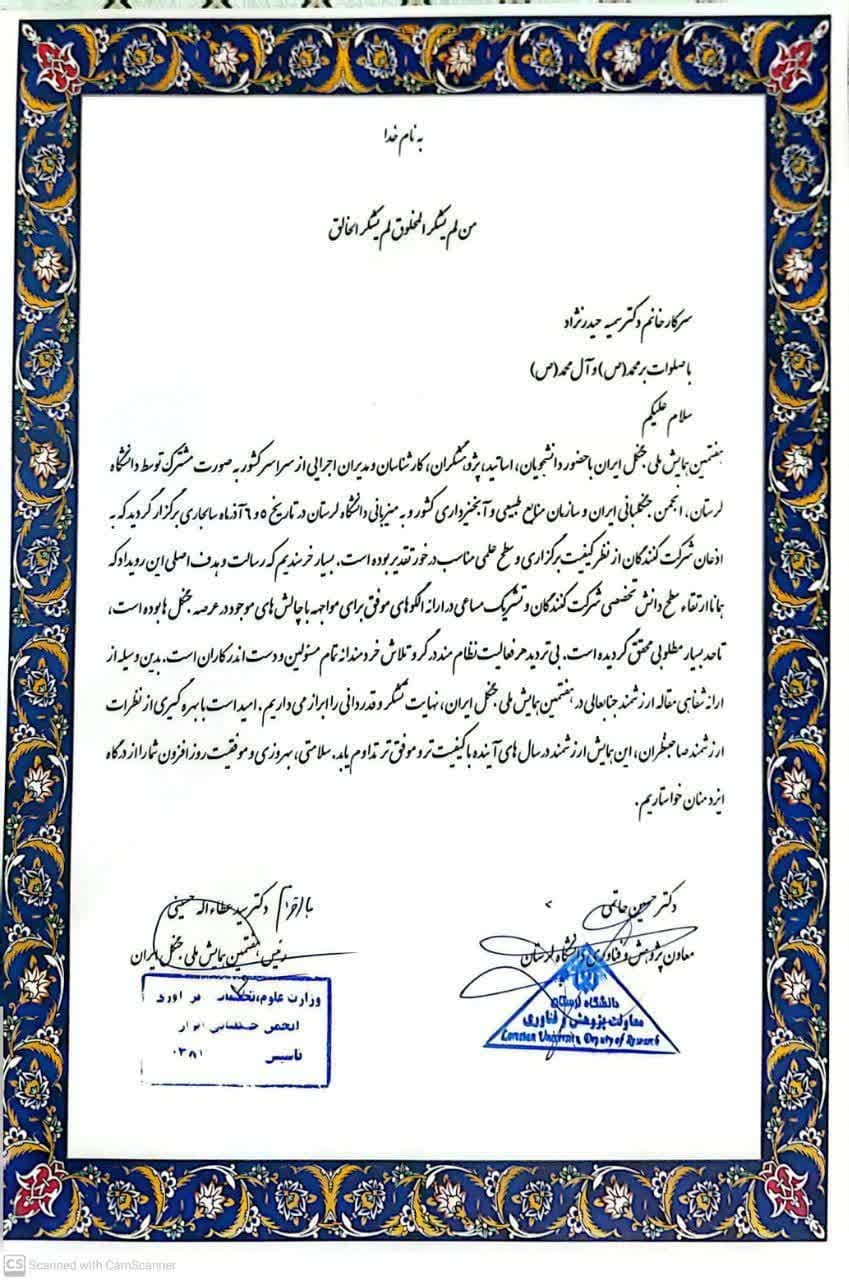 به نام خدا
من لم یشکر المخلوق لم یشکر الخالق
سرکار خانم دکتر سمیه حیدرنژاد
با صلوات بر محمد (ص) و آل محمد (ص)
سلام علیکم
هفتمین همایش ملی جنگل ایران با حضور دانشجویان، اساتید، پژوهشگران، کارشناسان و مدیران اجرایی از سراسر کشور به صورت مشترک توسط دانشگاه
لرستان، انجمن جنگلبانی ایران و سازمان منابع طبیعی و آبخیزداری کشور و به میزبانی دانشگاه لرستان در تاریخ ۵ و ۶ آذرماه سالجاری برگزار گردید که به
اذعان شرکت کنندگان از نظر کیفیت برگزاری و سطح علمی مناسب درخور تقدیر بوده است. بسیار خرسندیم که رسالت و هدف اصلی این رویداد که
همانا ارتقاء سطح دانش تخصصی شرکت کنندگان و تشریک مساعی در ارائه الگوهای موفق برای مواجهه با چالش های موجود در عرصه جنگل ها بوده است،
تا حد بسیار مطلوبی محقق گردیده است. بی تردید هر فعالیت نظام مند در گرو تلاش خردمندانه تمام مسئولین و دست اندرکاران است. بدین وسیله از
ارائه شفاهی مقاله ارزشمند جنابعالی در هفتمین همایش ملی جنگل ایران، نهایت تشکر و قدردانی را ابراز می داریم. امید است با بهره گیری از نظرات
ارزشمند صاحبنظران، این همایش ارزشمند در سال های آینده با کیفیت تر و موفق تر تداوم یابد. سلامتی، بهروزی و موفقیت روزافزون شما را از درگاه
ایزد منان خواستاریم.
دکتر حسین حاتمی
معاون پژوهش و فناوری دانشگاه لرستان
دانشگاه لرستان
معاونت پژوهشی و فناوری
Lorestan University, Deputy of Research
با احترام دکتر سید عطاءاله حسینی
رئیس هفتمین همایش ملی جنگل ایران
وزارت علوم، تحقیقات و فناوری
انجمن جنگلبانی ایران
تاسیس ۱۳۸۱
CS Scanned with CamScanner